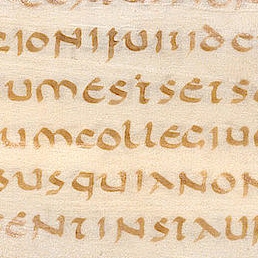 gionifuitide
umestsetse
umcollegiu
busquianon
entinstaur